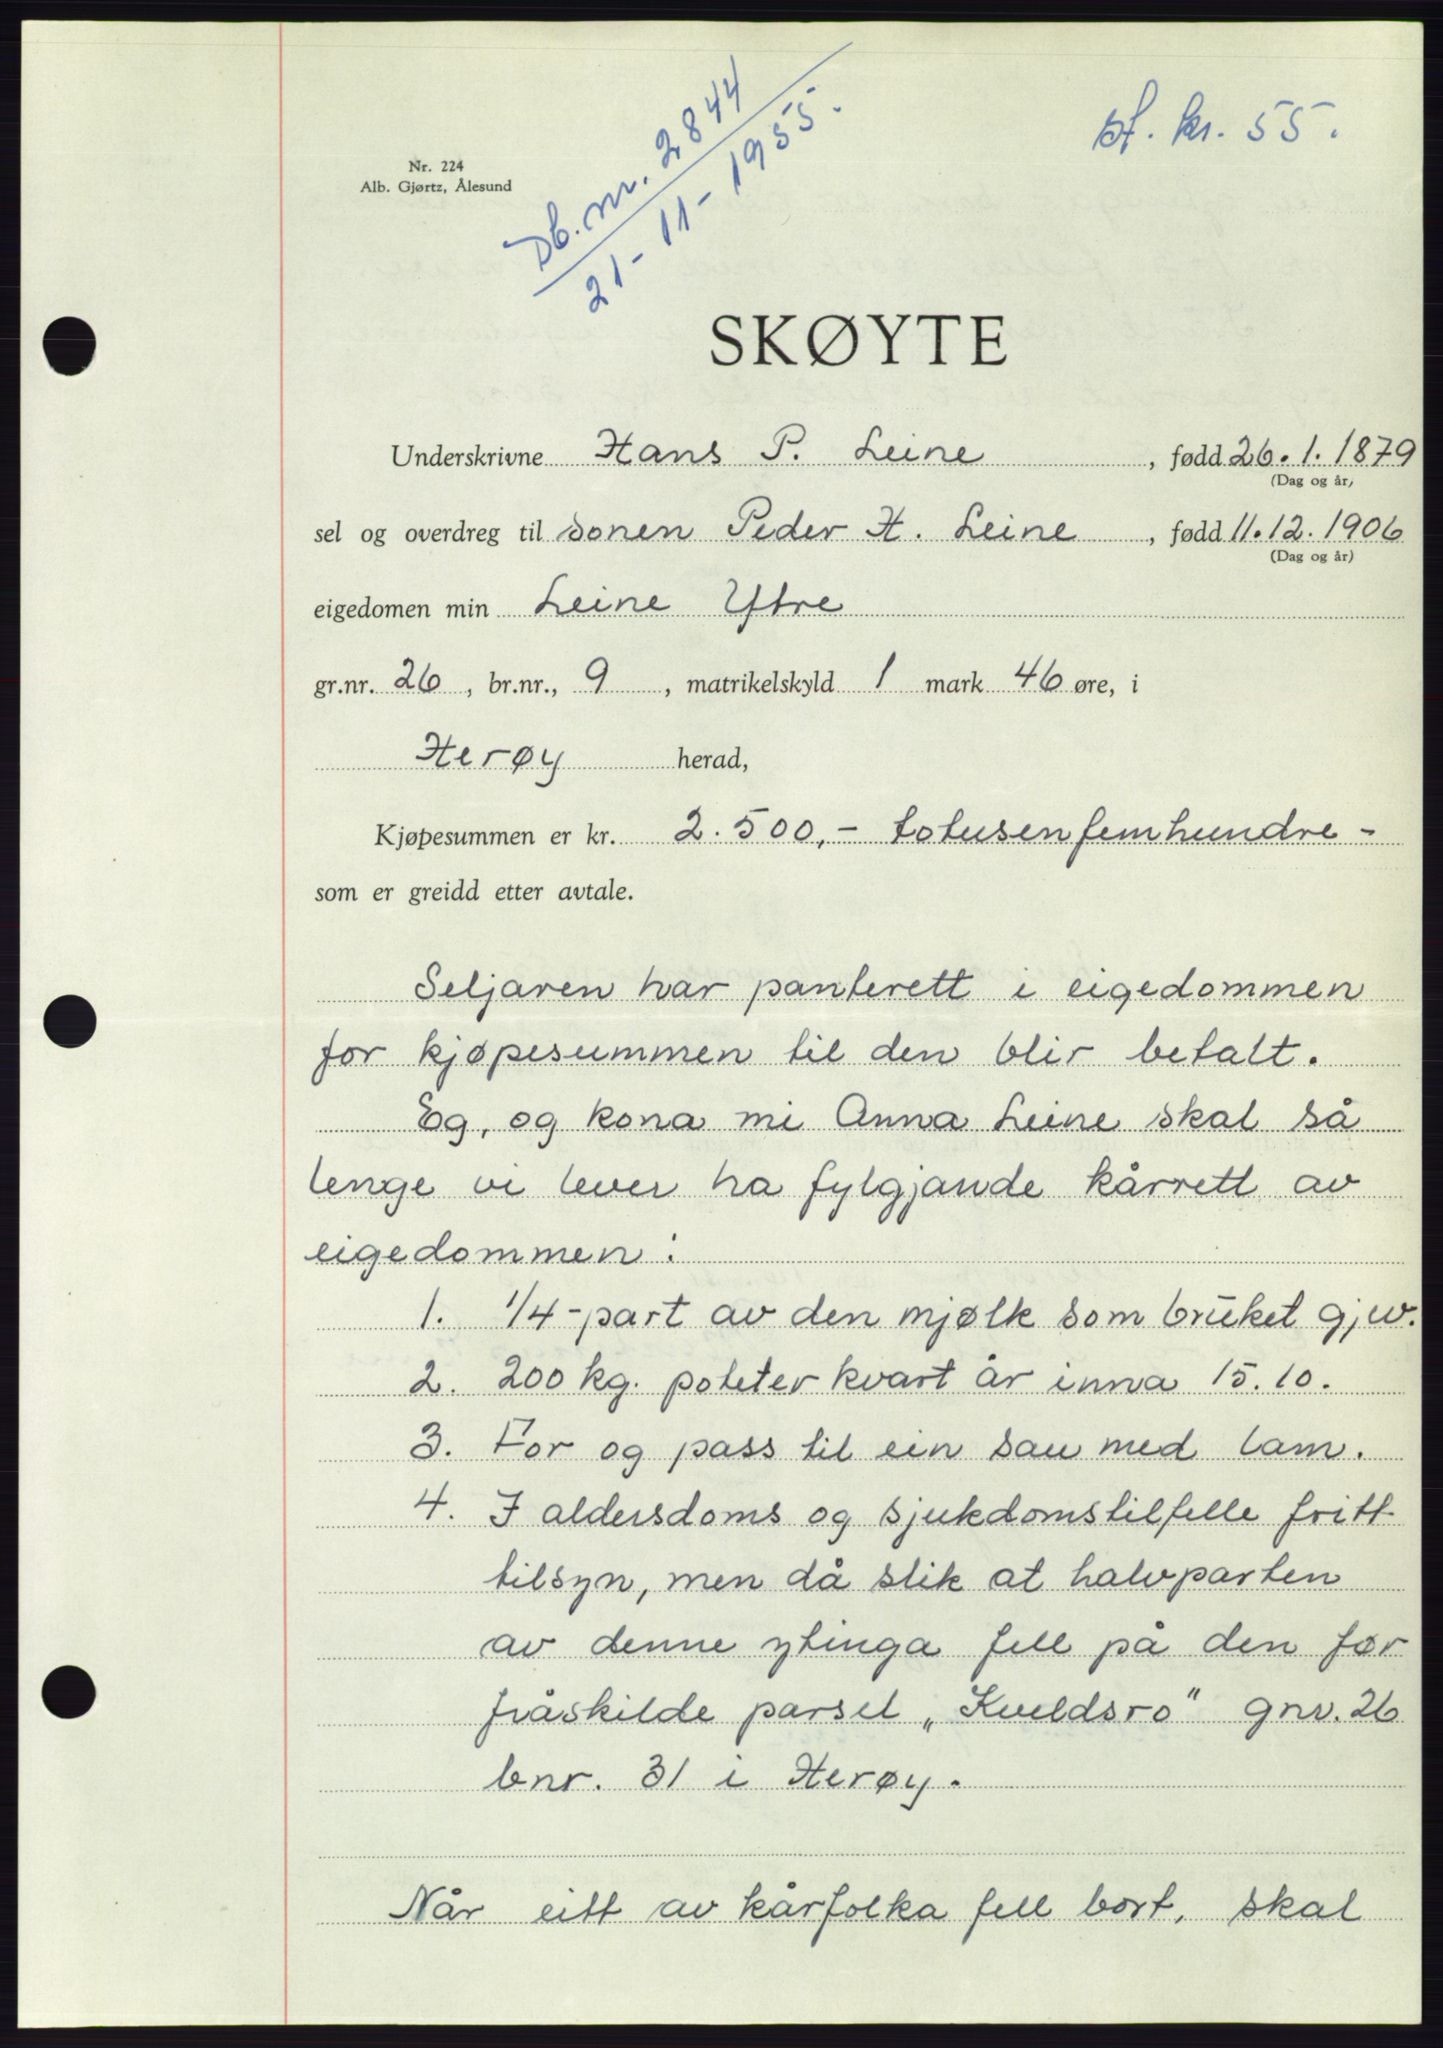 Db. nr. 2844
21-11-1955.
st. kr. 55.
Nr. 224
Alb. Gjørtz, Ålesund
SKØYTE
Underskrivne Hans P. Leine , fødd 26.1.1879
(Dag og år)
sel og overdreg til sonen Peder H. Leine , fødd 11.12.1906
(Dag og år)
eigedomen min Leine Ytre
gr.nr. 26 , br.nr., 9 , matrikelskyld 1 mark 46 øre, i
Herøy herad,
Kjøpesummen er kr. 2.500,- totusenfemhundre -
som er greidd etter avtale.
Seljaren har panterett i eigedommen
for kjøpesummen til den blir betalt.
Eg, og kona mi Anna Leine skal så
lenge vi lever ha fylgjande kårrett av
eigedommen:
1. 1/4-part av den mjølk som bruket gjev.
2. 200 kg. poteter kvart år inna 15.10.
3. For og pass til ein sau med lam.
4. I aldersdoms og sjukdomstilfelle fritt
tilsyn, men då slik at halvparten
av denne ytinga fell på den før
fråskilde parsel „Kveldsro" gnr. 26
bnr. 31 i Herøy.
Når eitt av kårfolka fell bort, skal